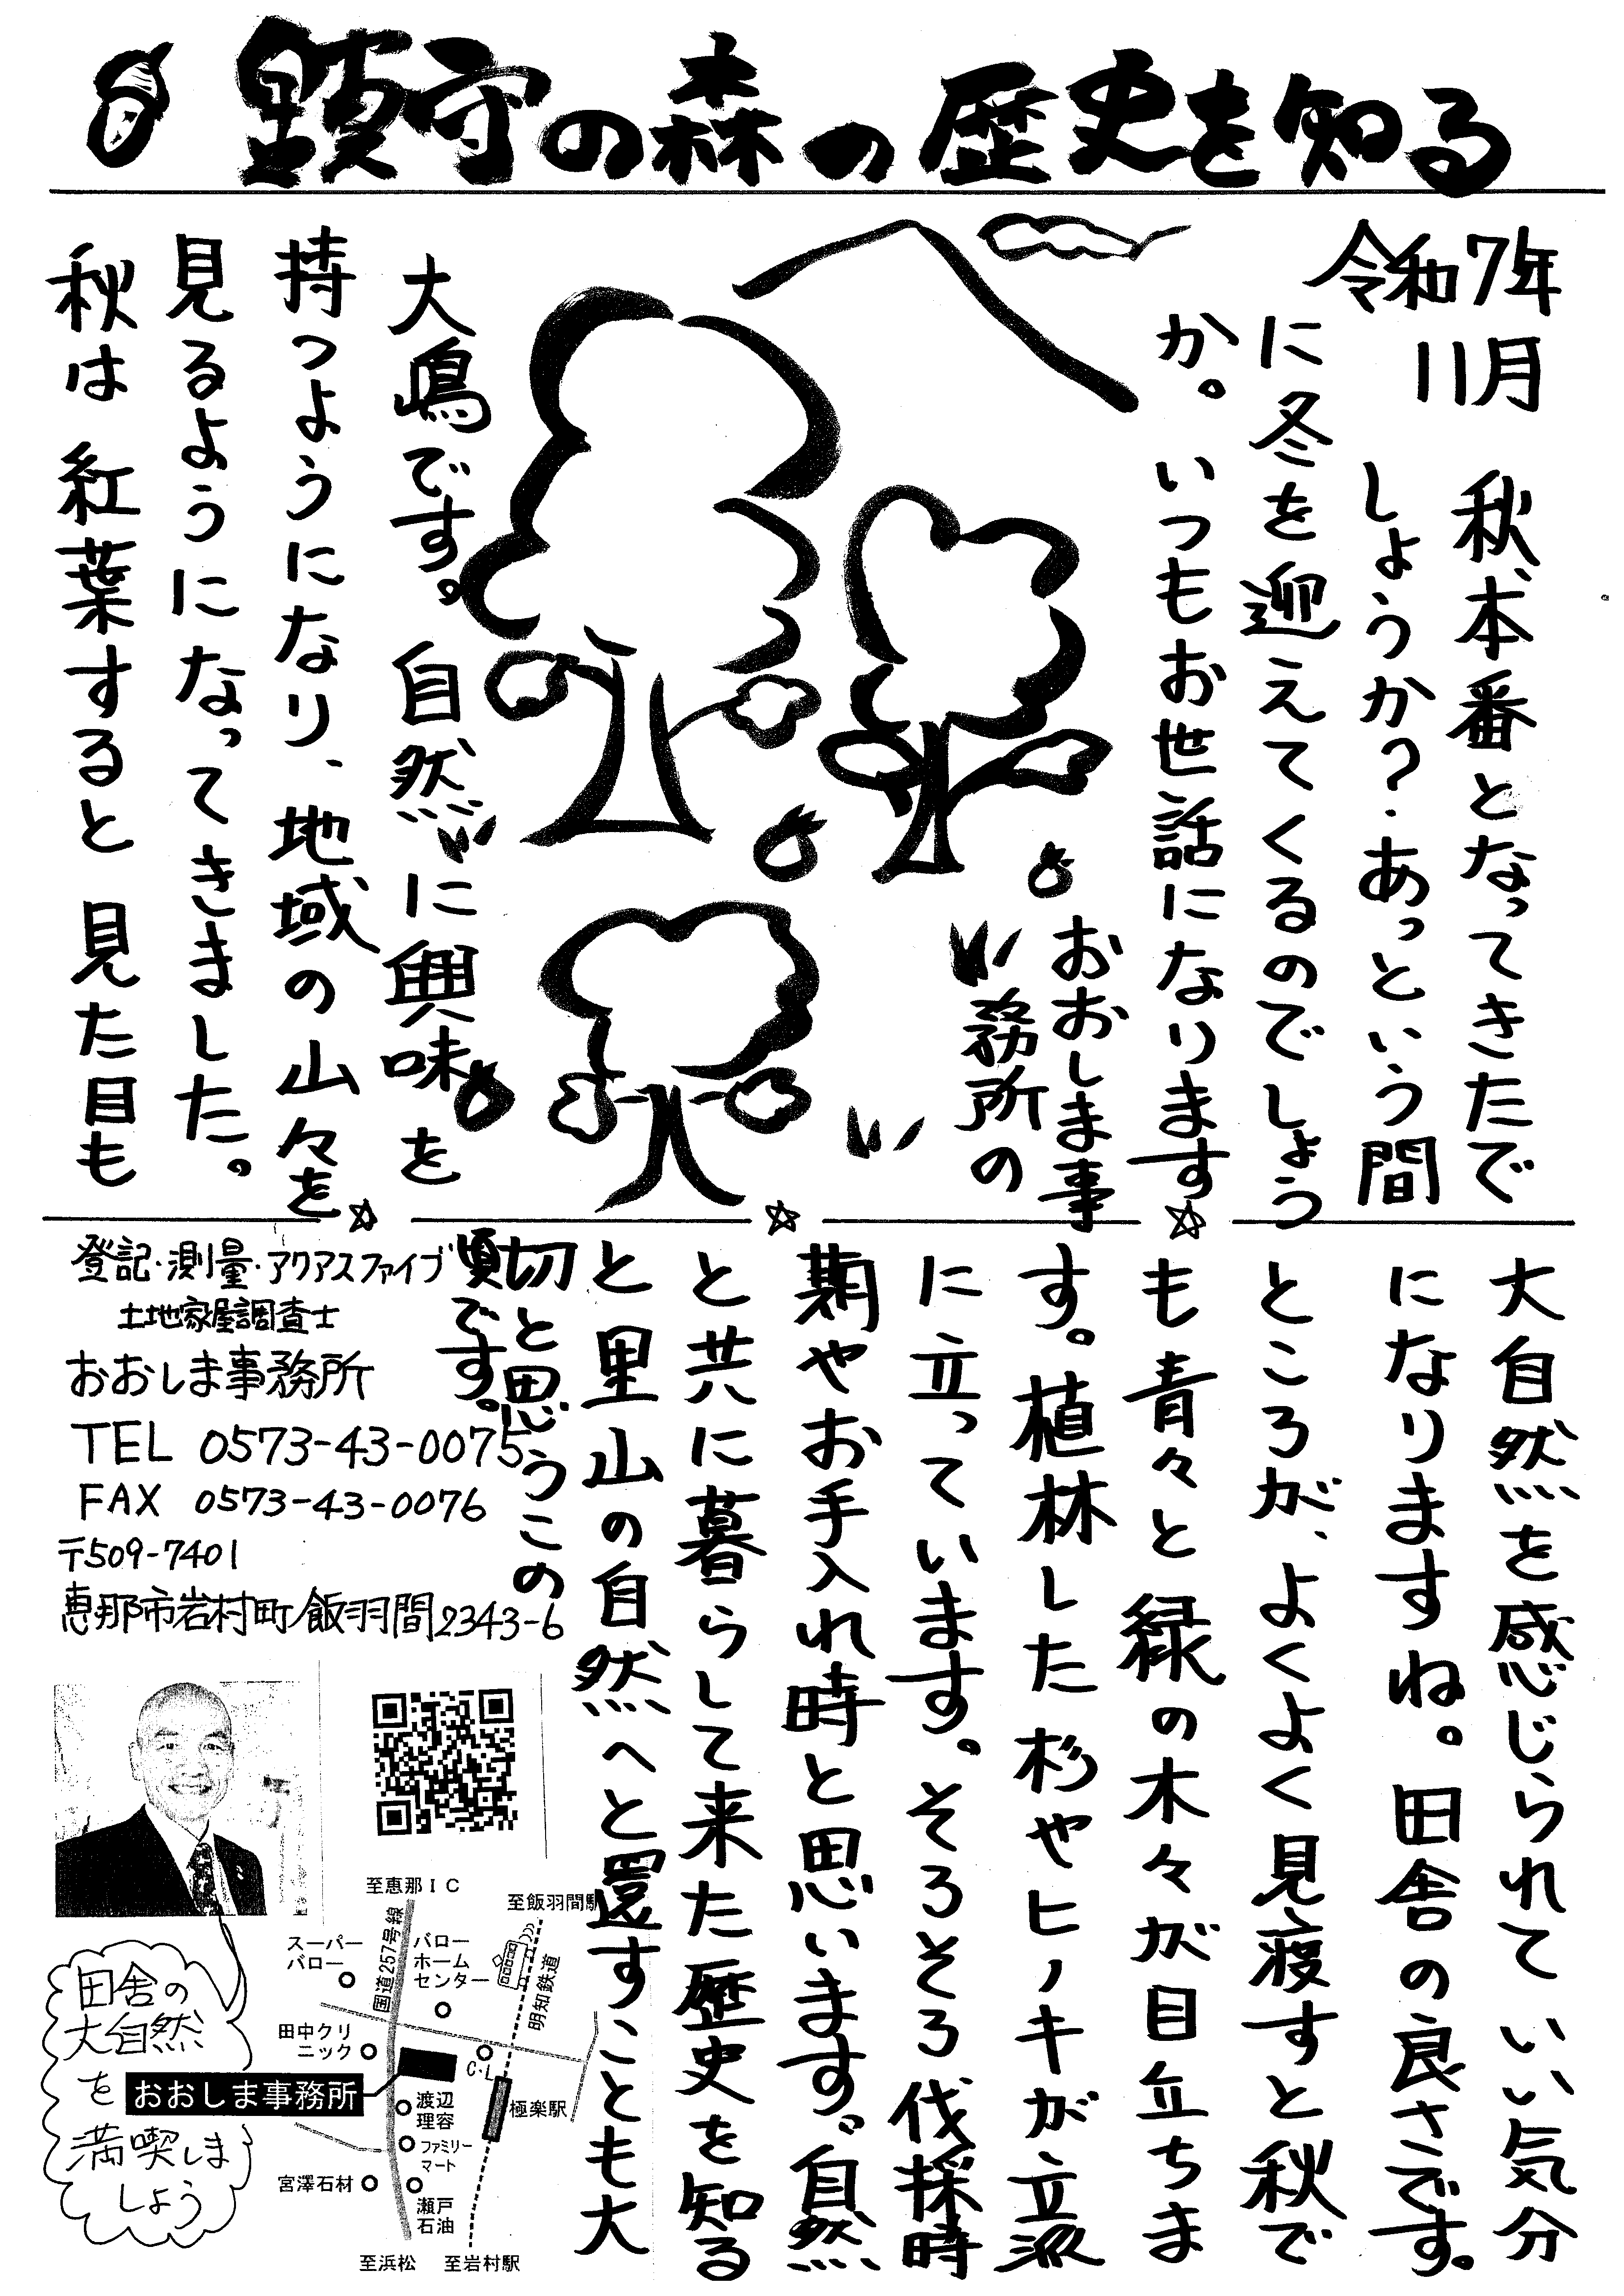 鎮守の森の歴史を知る
令和7年
11月
秋本番となってきたで
しょうか?あっという間
に冬を迎えてくるのでしょう
か。いつもお世話になります
おおしま事
務所の
大嶋です。自然に興味を
持つようになり、地域の山々を
見るようになってきました。
秋は紅葉すると見た目も
大自然を感じられていい気分
になりますね。田舎の良さです。
ところが、よくよく見渡すと秋で
も青々と緑の木々が目立ちま
す。植林した杉やヒノキが立派
に立っています。そろそろ伐採時
期やお手入れ時と思います。自然
と共に暮らして来た歴史を知る
と里山の自然へと還すことも大
切と思うこの
頃です。
登記・測量・アクアスファイブ
土地家屋調査士
おおしま事務所
TEL 0573-43-0075
FAX 0573-43-0076
〒509-7401
恵那市岩村町飯羽間2343-6
田舎の
大自然
を
満喫しま
しょう
至恵那IC
至飯羽間駅
国道257号線
スーパー
バロー
バロー
ホーム
センター
明知鉄道
田中クリ
ニック
C・L
おおしま事務所
渡辺
理容
極楽駅
ファミリー
マート
宮澤石材
瀬戸
石油
至浜松
至岩村駅